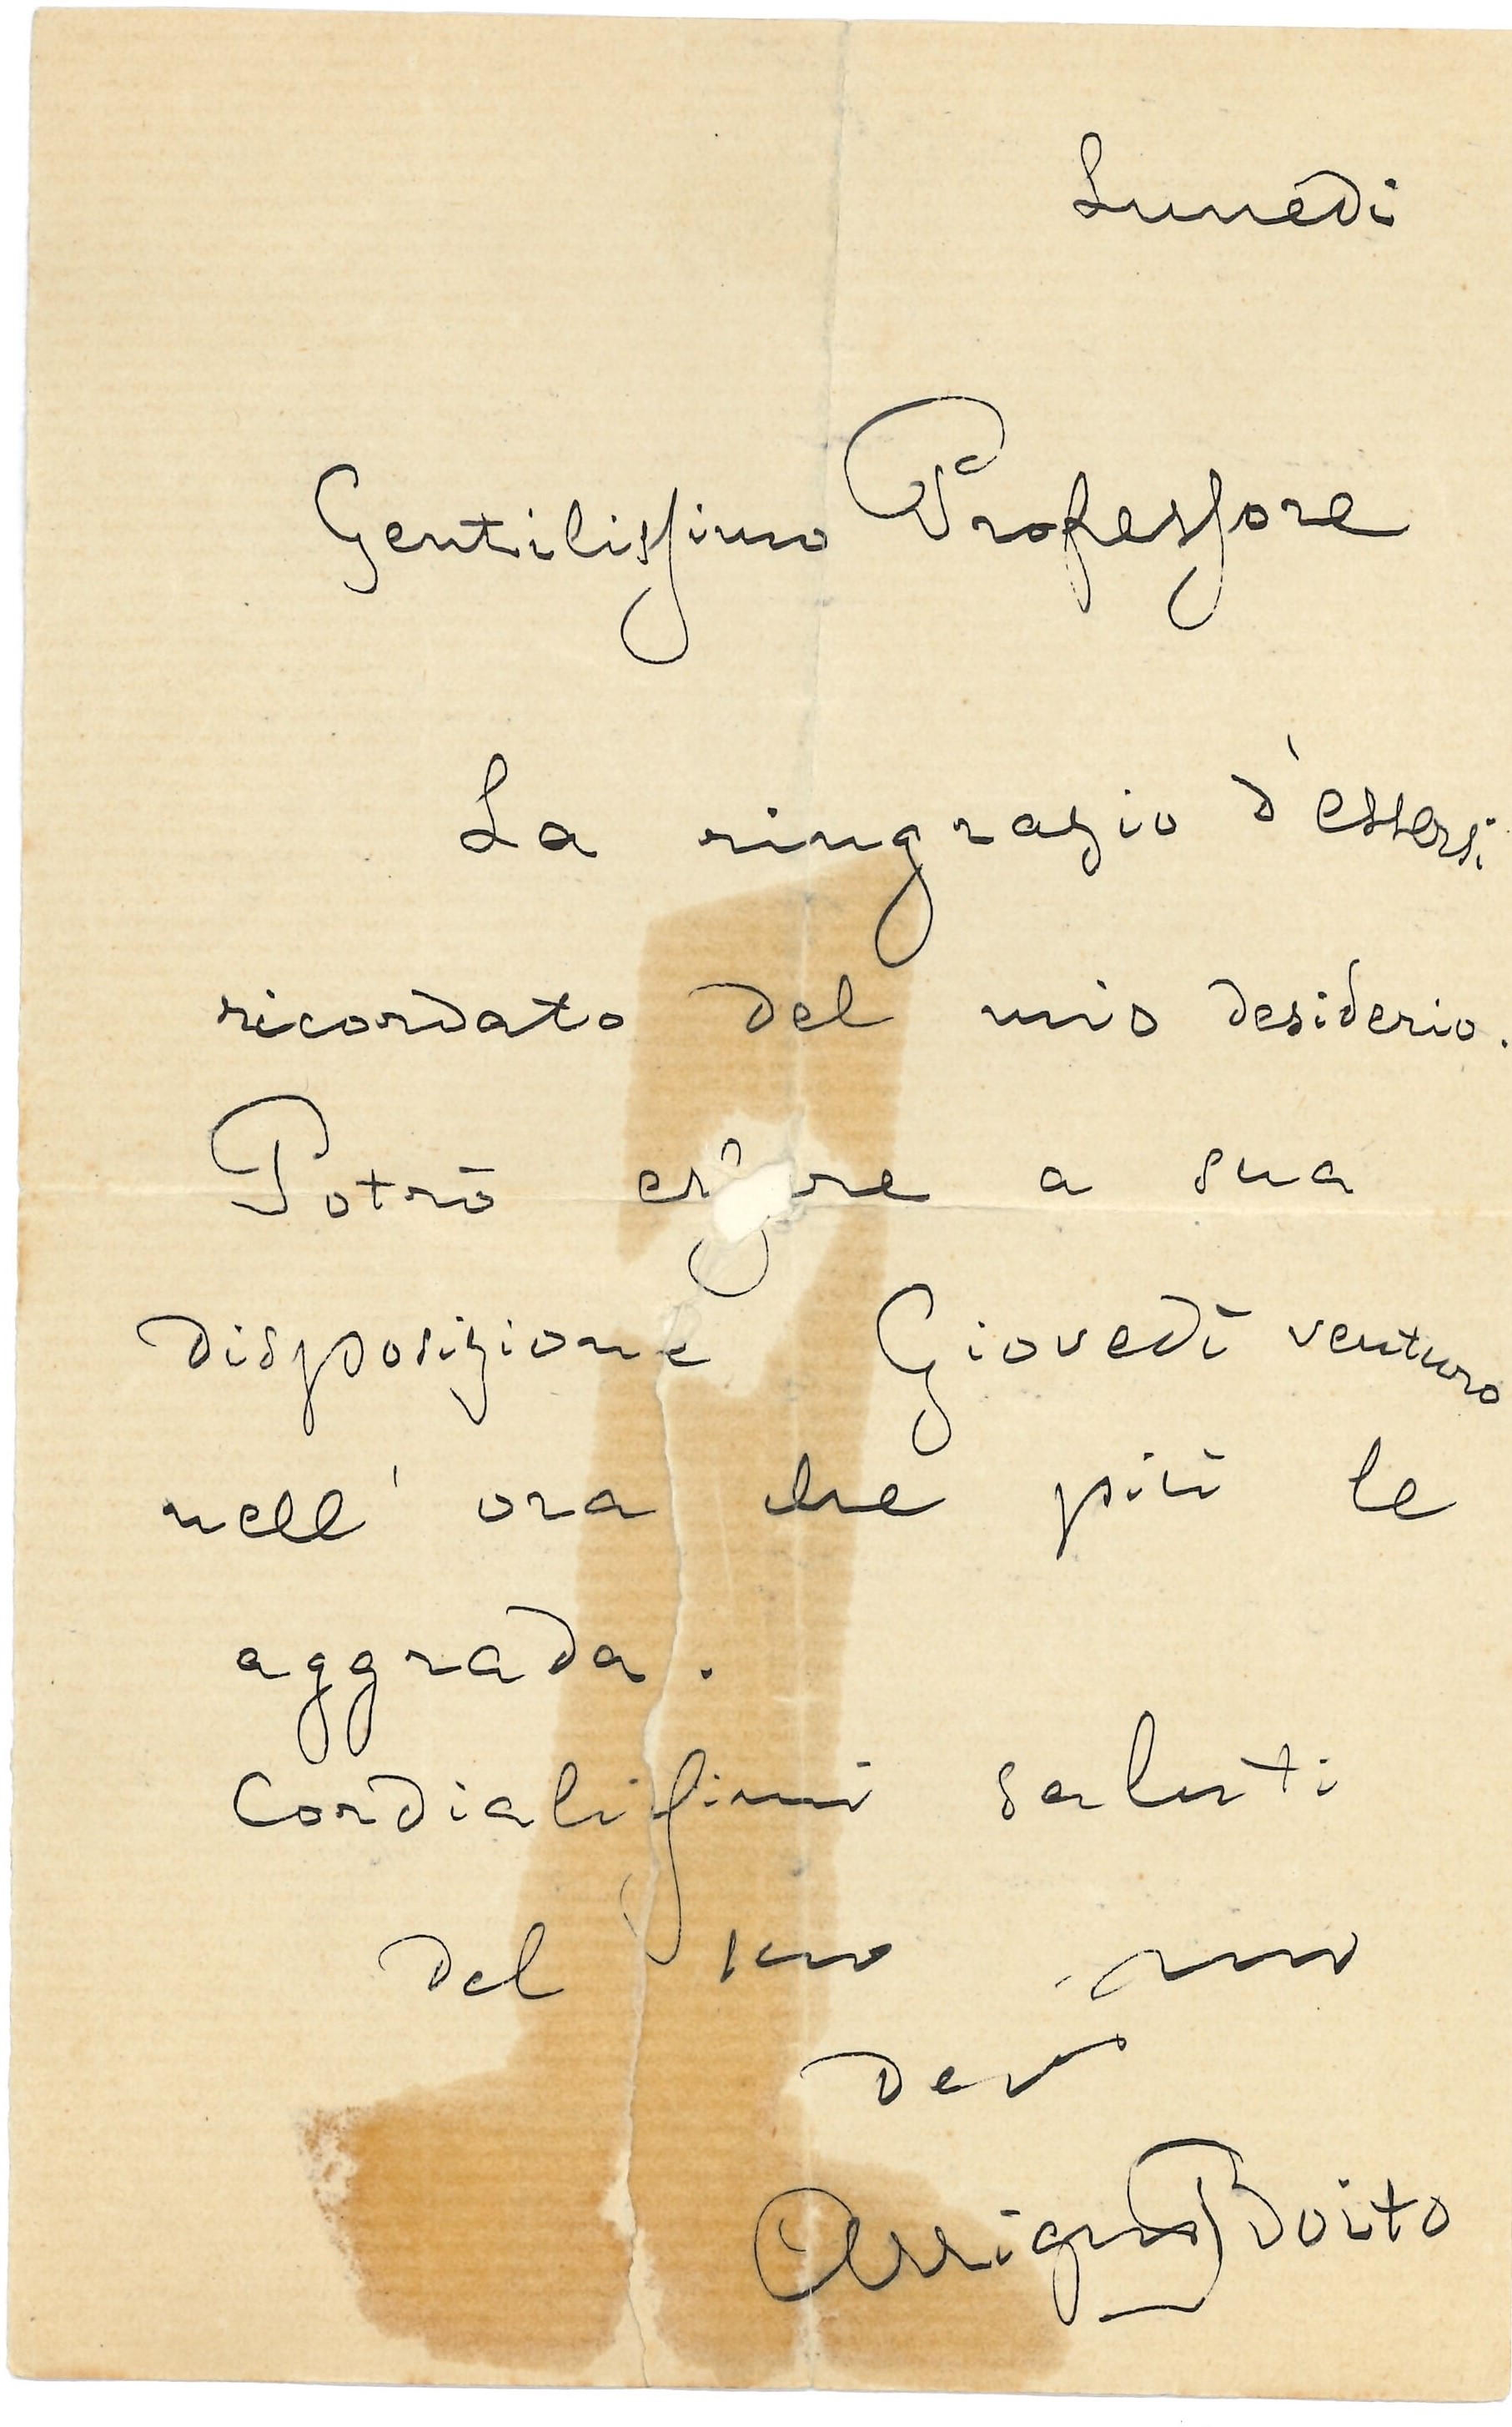 Lunedi
Gentilissimo Professore
La ringrazio d'essersi
ricordato del mio desiderio.
Potrò essere a sua
disposizione Giovedì venturo
nell'ora che più le
aggrada.
Cordialissimi saluti
del suo
dev<sup>o</sup>
Arrigo Boito